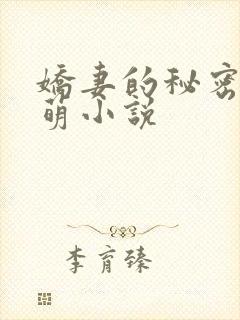 娇妻的秘密
萌小说
李育臻